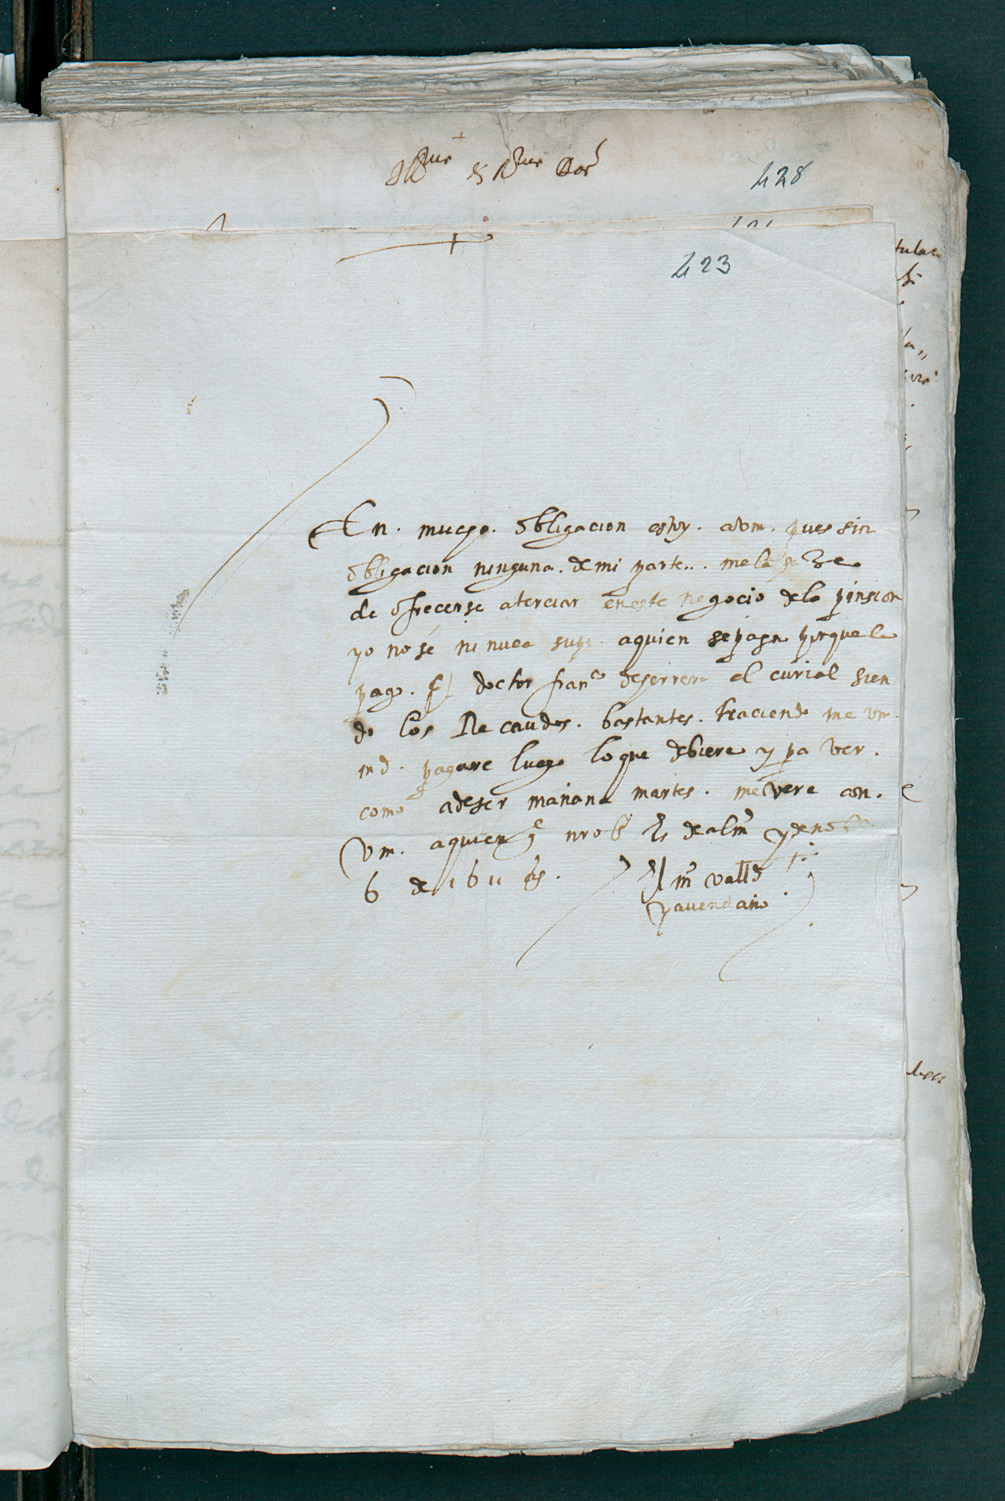 428
423
En. mucha. obligacion estoy. a vm. pues sin
obligacion ninguna. de mi parte.. me la haze
de ofrecerse a terciar en este negocio de la pinsion
yo no sé ni nuca supe aquien se paga porque la
pago. el doctor franco de herrera el curial sien
do los Recaudos. bastantes. traciendo me vm
md. pagare luego lo que debiere y pa ver.
como a de ser mañana martes. me vere con.
vm. aquien ge nro Sr de alma y de
6 de 1611 as.
El m valld
y auendaño